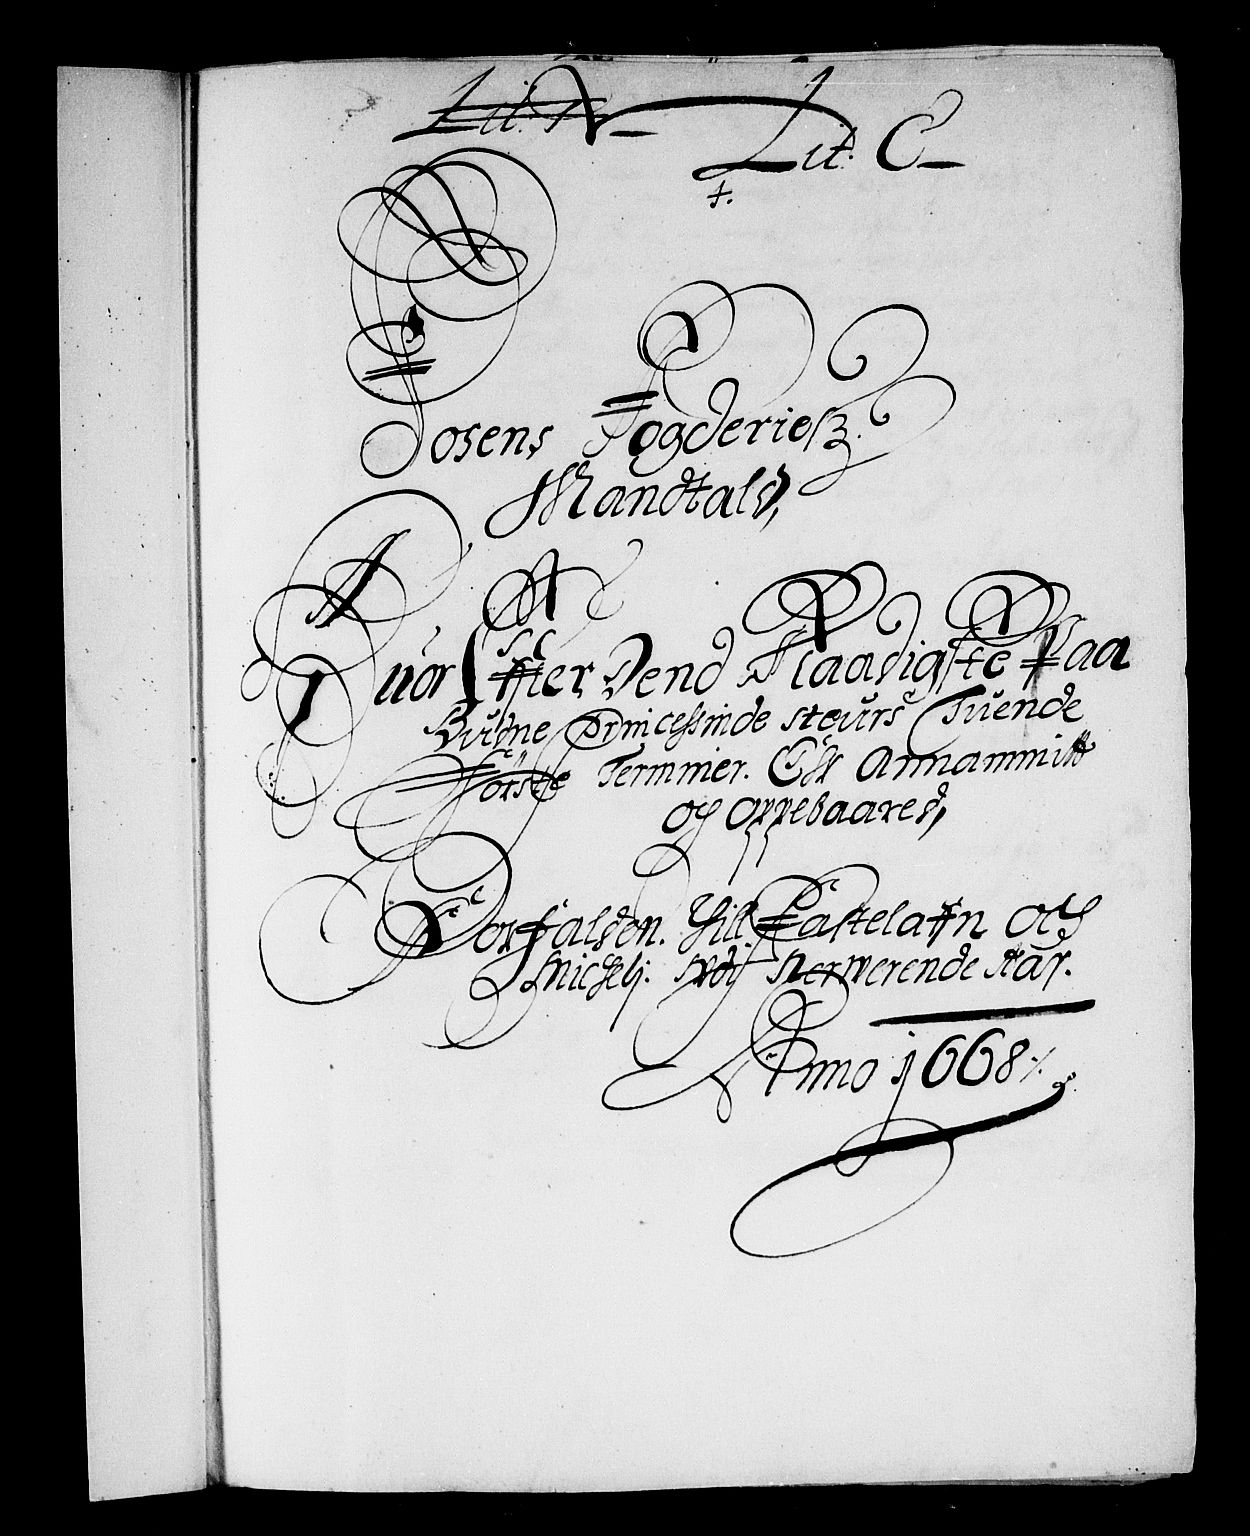 Lit. C
Fosens Fogderiesz.
Mandtals,
Huor Effter Dend Naadigste Paa
Budne Princessinde steurs Tuende
Förste Terminer. Er Annammitt
og oppebaaret,
Forfalden. Till Fastelafn och
Michelj. Udj Nerwerende Aar.
Anno 1668